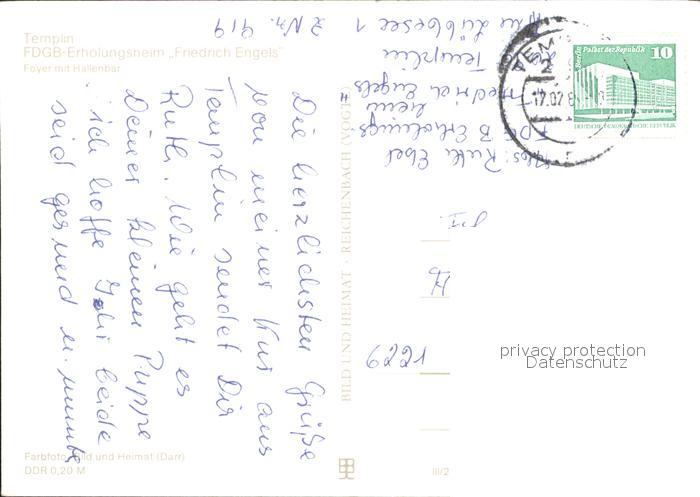 Templin
FDGB-Erholungsheim „Friedrich Engels"
Foyer mit Hallenbar
Die herzlichsten Grüße
von meiner Kur aus
Templin sendet Dir
Ruth. Wie geht es
Deiner kleinen Puppe
ich hoffe Ihr beide
seid gesund u. munter
Abs: Ruth Ebel
FDGB Erholungs-
heim
Friedrich Engels
Templin
Am Lübbesee 1
Z Nr. 919
1229
BILD UND HEIMAT · REICHENBACH (VOGTL)
Farbfoto: Bild und Heimat (Darr)
DDR 0,20 M
III/2
TEMPLIN
17.07.8
Berlin Palast der Republik
10
DEUTSCHE DEMOKRATISCHE REPUBLIK
privacy protection
Datenschutz